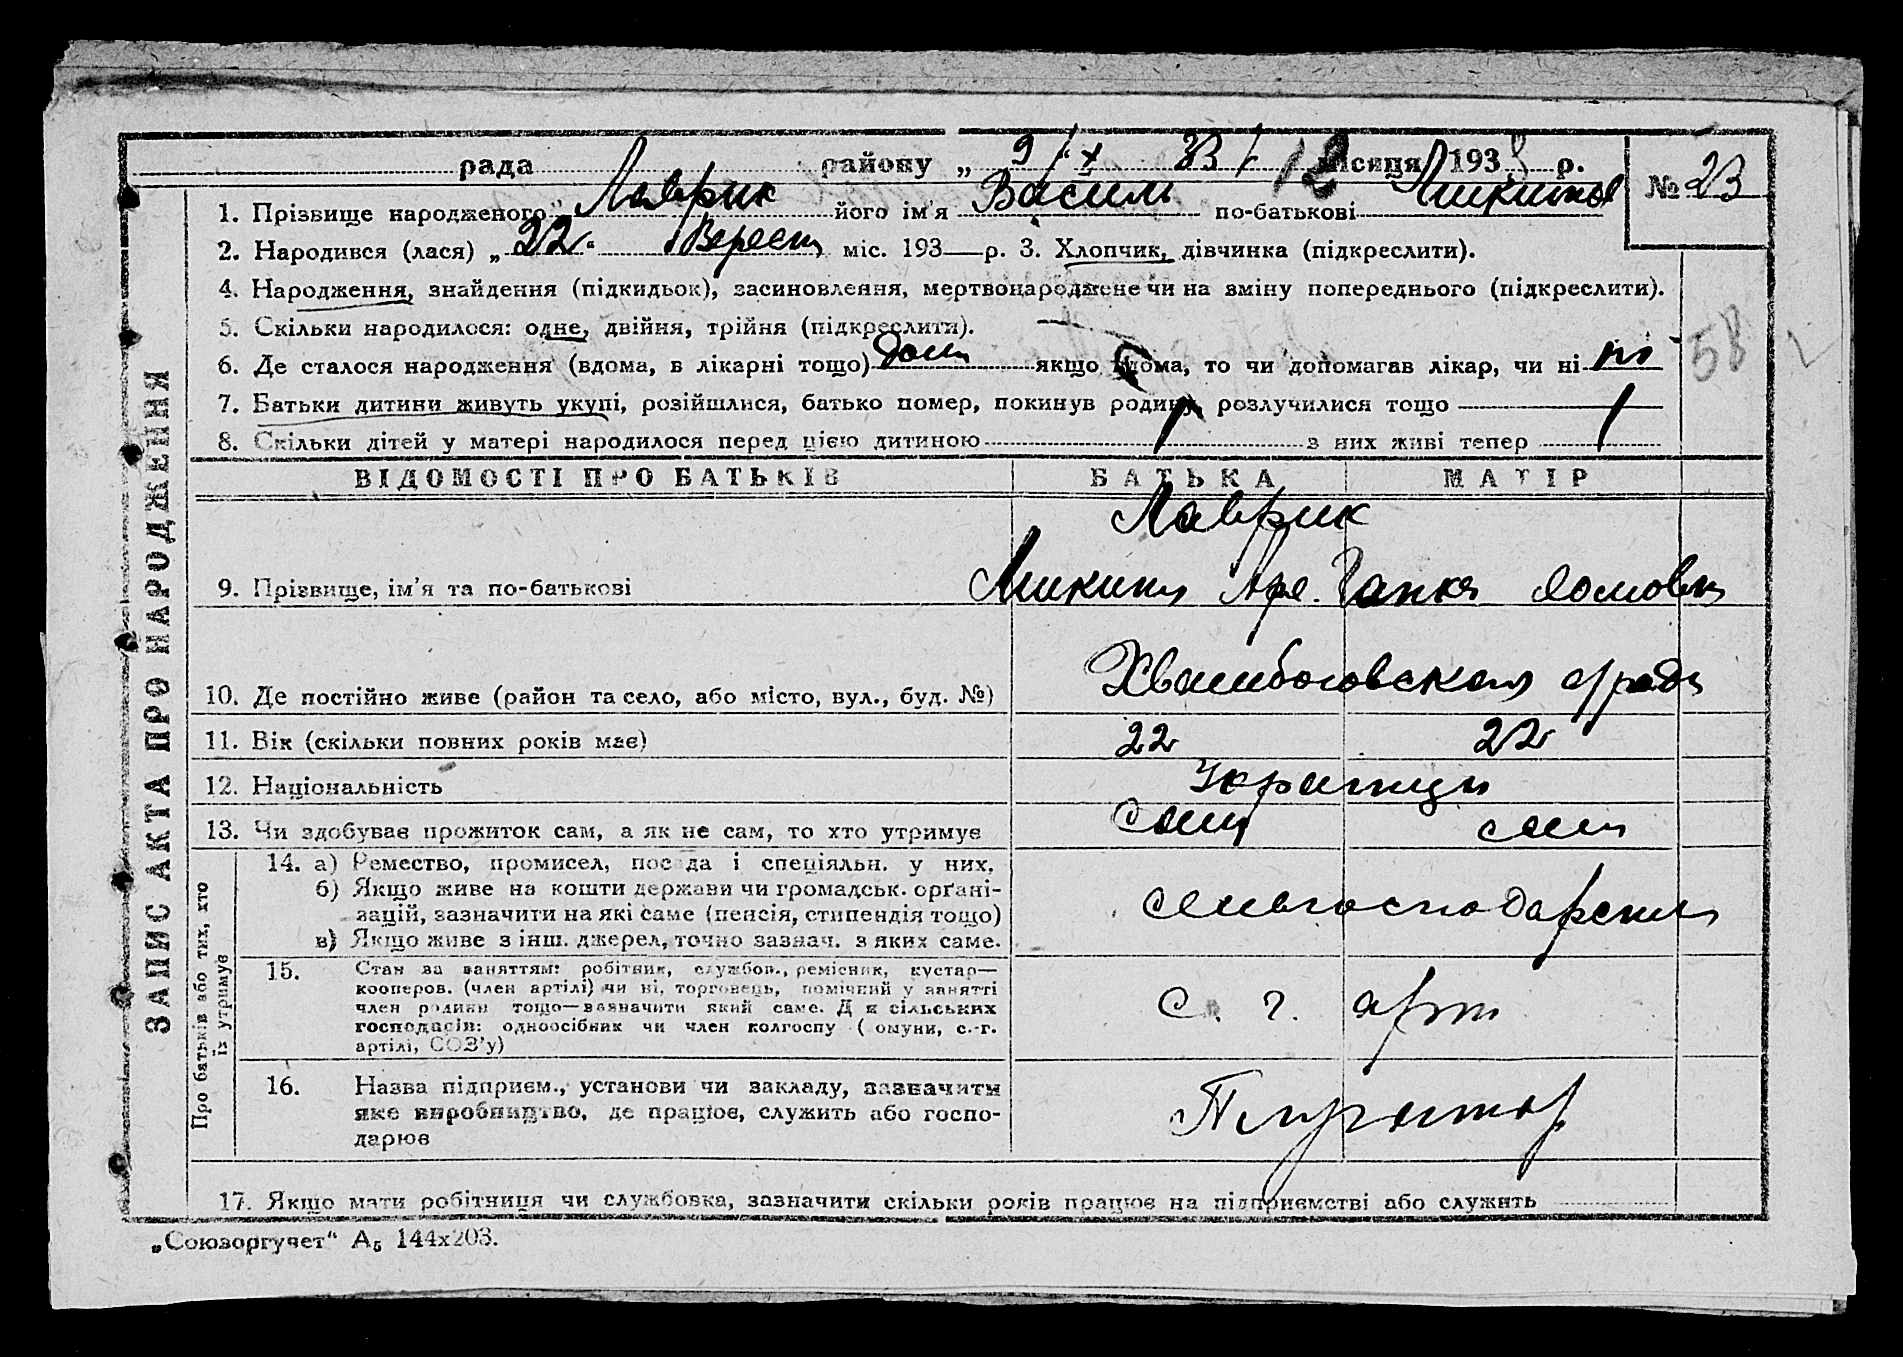 рада району „ 9/X 33 / 12 місяця 193 р.
№ 23
1. Прізвище народженого Лаврик його ім'я Василь по-батькові Микитов
2. Народився (лася) „ 22 " Вересня міс. 193 р. 3. Хлопчик, дівчинка (підкреслити).
4. Народження, знайдення (підкидьок), засиновлення, мертвонароджене чи на зміну попереднього (підкреслити).
5. Скільки народилося: одне, двійня, трійня (підкреслити).
6. Де сталося народження (вдома, в лікарні тощо) дома якщо вдома, то чи допомагав лікар, чи ні ні
58
7. Батьки дитини живуть укупі, розійшлися, батько помер, покинув родину, розлучилися тощо
8. Скільки дітей у матері народилося перед цією дитиною 1 з них живі тепер 1
ЗАПИС АКТА ПРО НАРОДЖЕННЯ
ВІДОМОСТІ ПРО БАТЬКІВ БАТЬКА МАТІР
Лаврик
9. Прізвище, ім'я та по-батькові Микита Гапка
10. Де постійно живе (район та село, або місто, вул., буд. №)
11. Вік (скільки повних років має) 22 22
12. Національність Українци
13. Чи здобуває прожиток сам, а як не сам, то хто утримує сам сам
Про батьків або тих, хто їх утримує
14. а) Ремество, промисел, посада і спеціяльн. у них.
б) Якщо живе на кошти держави чи громадськ. орґані-
зацій, зазначити на які саме (пенсія, стипендія тощо)
в) Якщо живе з інш. джерел, точно зазнач. з яких саме.
15. Стан за заняттям: робітник, службов., ремісник, кустар—
кооперов. (член артілі) чи ні, торговець, помічний у занятті
член родини тощо—зазначити який саме. Для сільських
господарів: одноосібник чи член колгоспу (комуни, с.-г.
артілі, СОЗ'у)
С. г. арт
16. Назва підприєм., установи чи закладу, зазначити
яке виробництво, де працює, служить або госпо-
дарює
17. Якщо мати робітниця чи службовка, зазначити скільки років працює на підприємстві або служить
„Союзоргучет" А5 144х203.